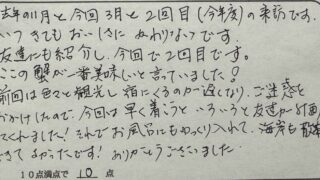 去年の11月と今回3月と2回目(今年度)の来訪です。
いつきてもおいしさにかわりないです。
友達にも紹介し、今回で2回目です。
ここの蟹が一番美味しいと言っていました!
前回は色々と観光し、宿につくのが遅くなり、ご迷惑を
おかけしたので、今回は早く着こうといろいろと友達が計画
てくれました! それでお風呂にもゆっくり入れて、海岸も散策
できてよかったです! ありがとうございました。
10点満点で 10 点